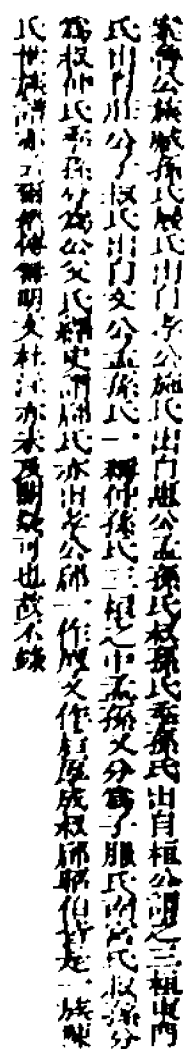 案魯公族臧孫氏展氏出自孝公施氏出自惠公孟孫氏叔孫氏季孫氏出自桓公謂之三桓東門
氏出自莊公子叔氏出自文公孟孫氏一稱仲孫氏三桓之中孟孫又分爲子服氏南宮氏叔孫分
爲叔仲氏季孫分爲公父氏釋史謂郈氏亦出孝公郈一作厚又作后厚成叔郈昭伯皆是一族陳
氏世族譜亦云爾然傳無明文杜注亦未及明疑可也故不錄